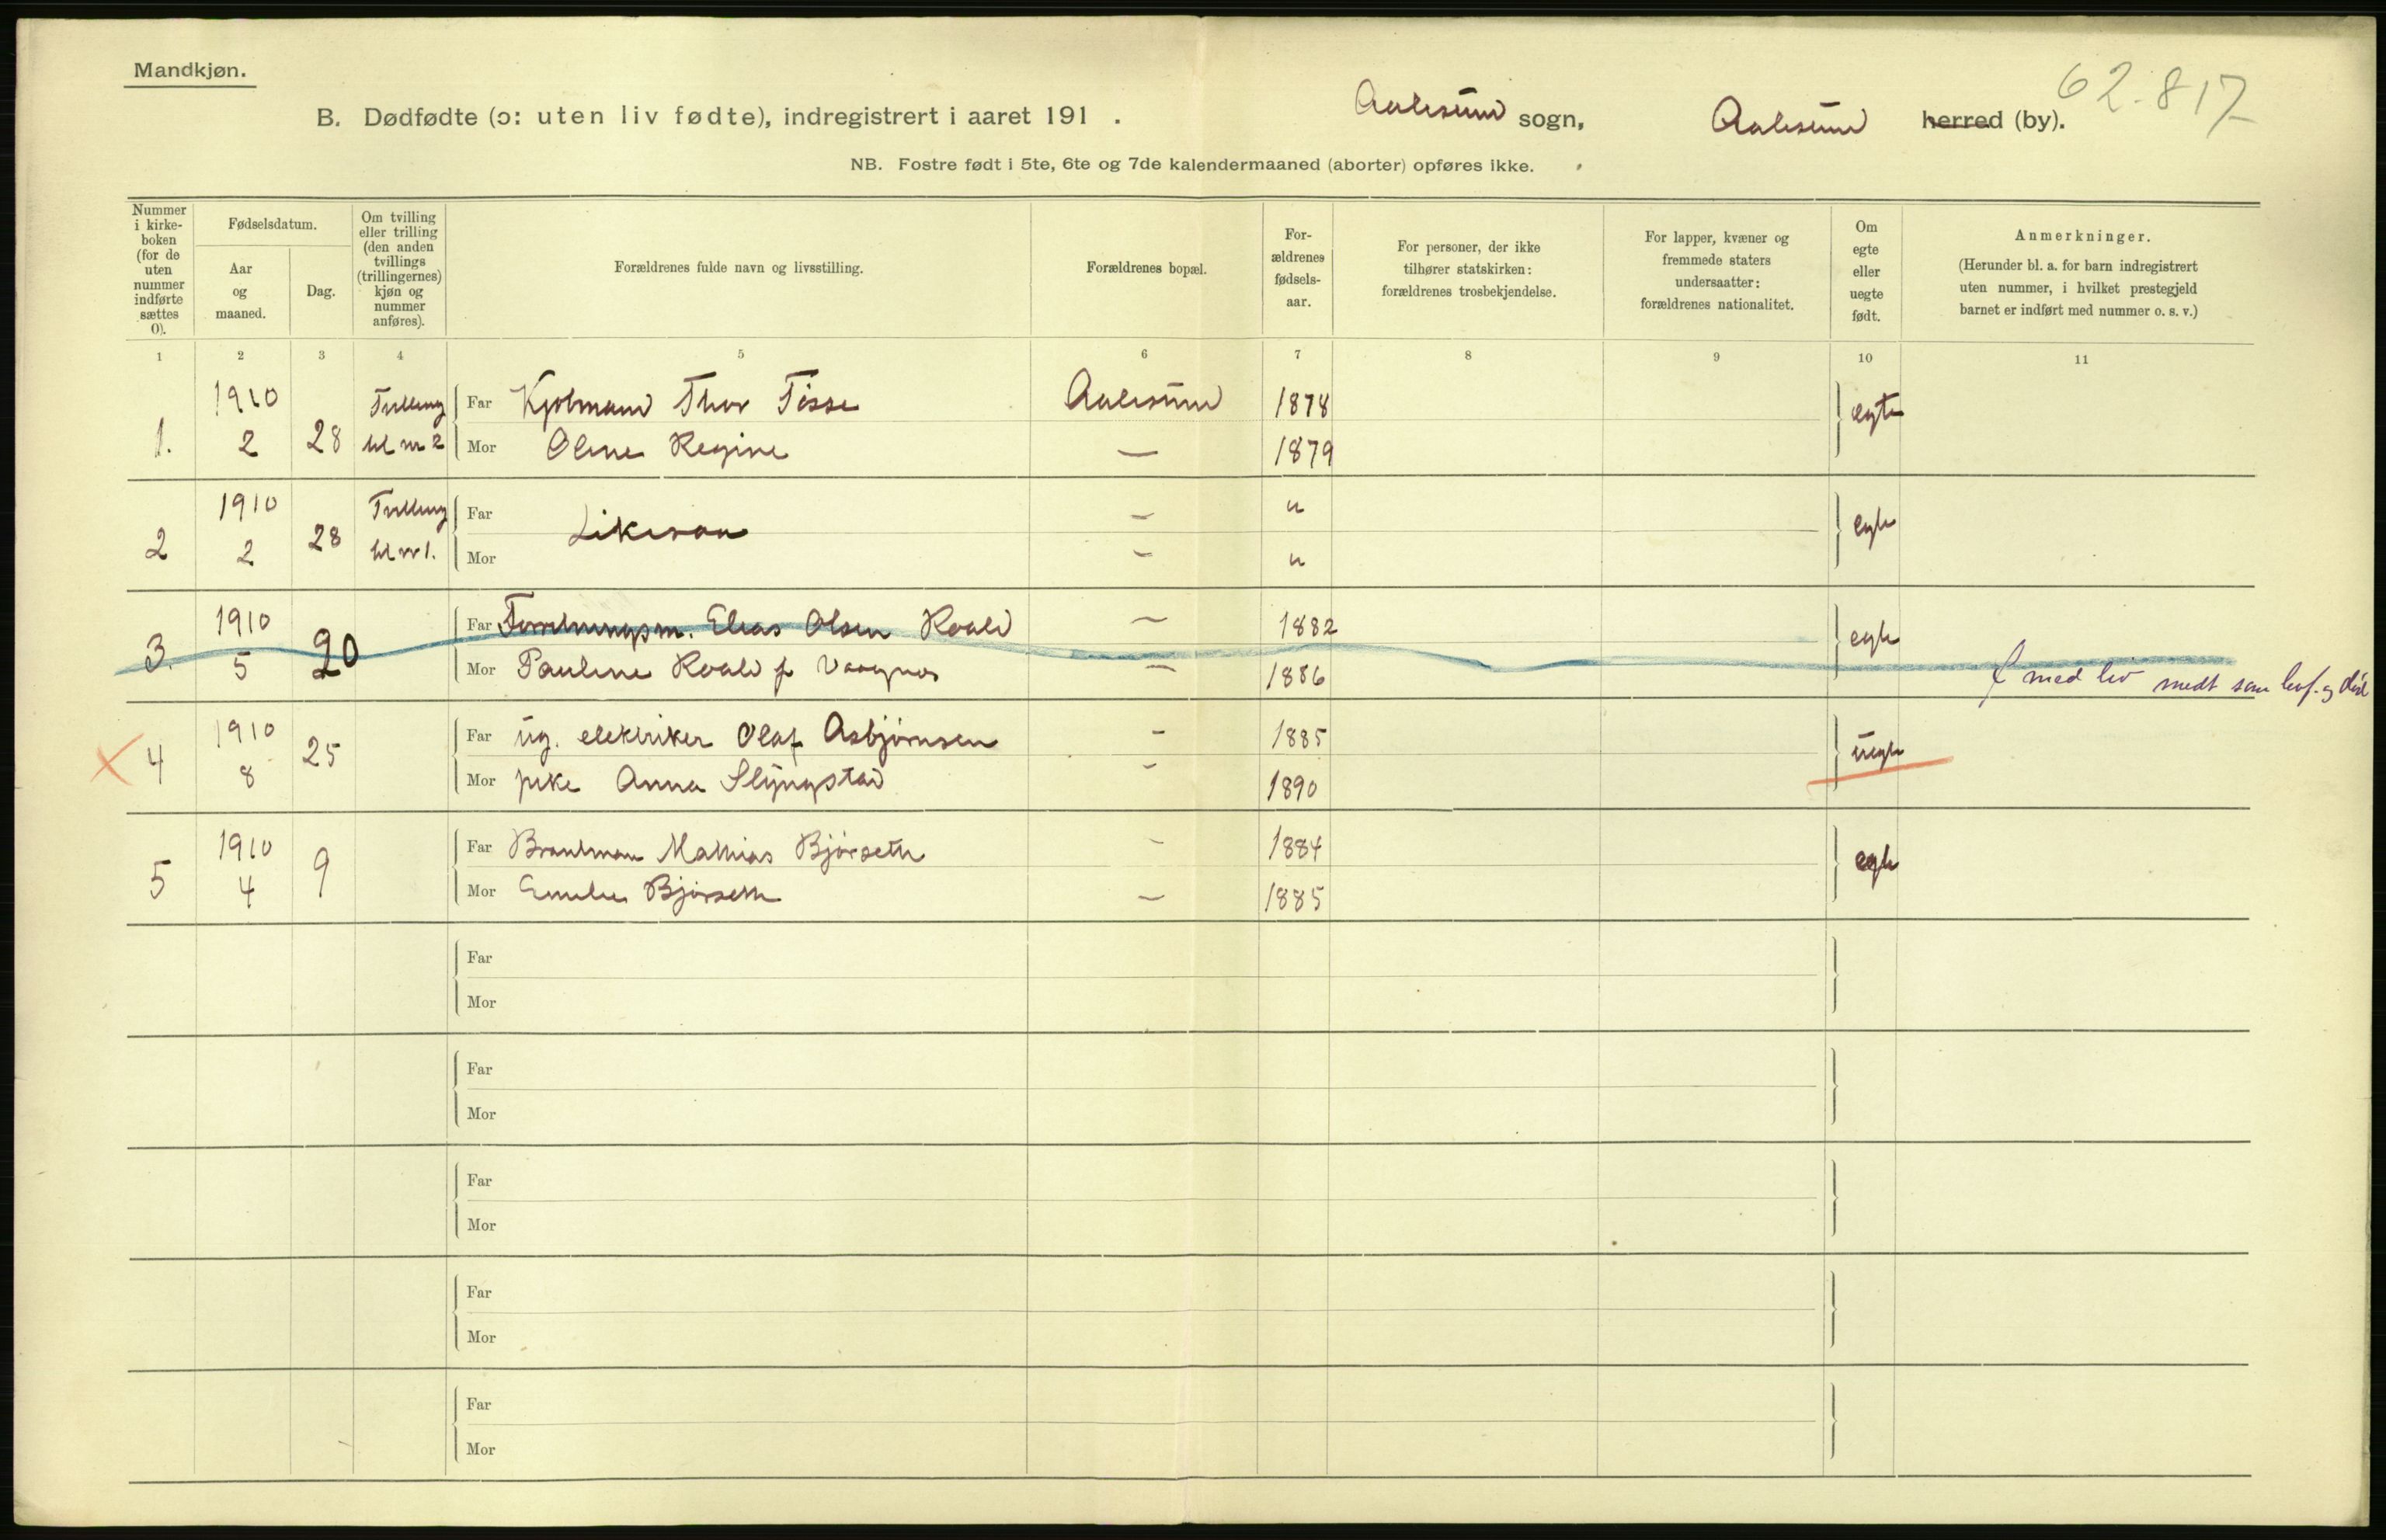 Mandkjøn.
62.817
B. Dødfødte (ɔ: uten liv fødte), indregistrert i aaret 191 . Aalesund sogn, Aalesund herred (by).
NB. Fostre født i 5te, 6te og 7de kalendermaaned (aborter) opføres ikke.
Nummer i kirke-boken (for de uten nummer indførte sættes 0).
Fødselsdatum.
Aar og maaned.
Dag.
Om tvilling eller trilling (den anden tvillings (trillingernes) kjøn og nummer anføres).
Forældrenes fulde navn og livsstilling.
Forældrenes bopæl.
For-ældrenes fødsels-aar.
For personer, der ikke tilhører statskirken: forældrenes trosbekjendelse.
For lapper, kvæner og fremmede staters undersaatter: forældrenes nationalitet.
Om egte eller uegte født.
Anmerkninger.
(Herunder bl. a. for barn indregistrert uten nummer, i hvilket prestegjeld barnet er indført med nummer o. s. v.)
1 2 3 4 5 6 7 8 9 10 11
1. 1910 2 28 Tvilling til nr 2
Far Kjøbmand Thor Tosse Aalesund 1878 egte
Mor Oline Regine — 1879
2 1910 2 28 Tvilling til nr 1.
Far Likesaa — " egte
Mor — "
3. 1910 5 20
Far Forretningsm. Elias Olsen Roald — 1882 egte
Mor Pauline Roald f — 1886 med liv medt som lev. og død
4 1910 8 25
Far ug. elektriker Olaf Asbjørnsen - 1885 uegte
Mor pike Anna Slyngstad - 1890
5 1910 4 9
Far Brandman Mathias Bjørseth - 1884 egte
Mor Emilie Bjørseth — 1885
Far
Mor
Far
Mor
Far
Mor
Far
Mor
Far
Mor